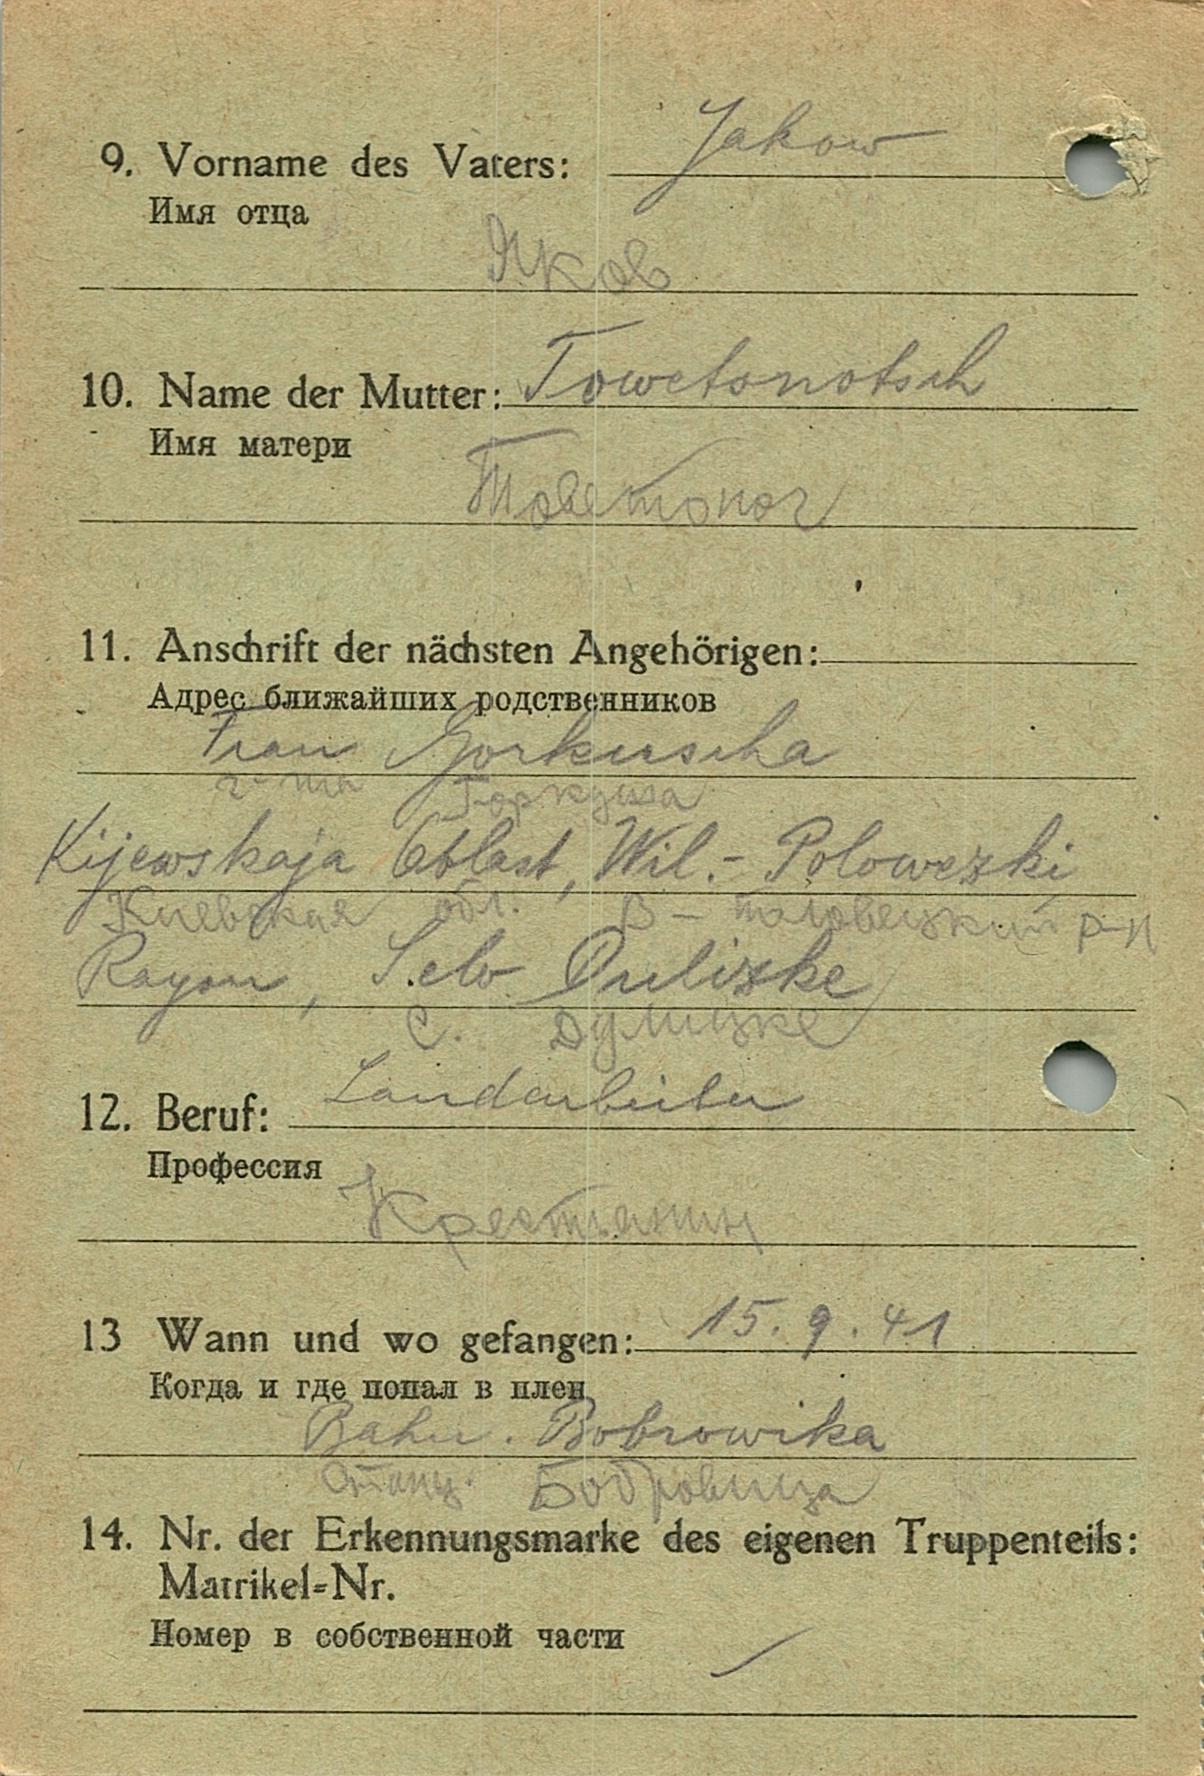 9. Vorname des Vaters: Jakow
Имя отца
Яков
10. Name der Mutter: Towetonotsch
Имя матери
Товетоног
11. Anschrift der nächsten Angehörigen:
Адрес ближайших родственников
Frau Gorkuscha
Горкуша
Kijewskaja Oblast, Wil.- Polowezki
Киевская обл. В - половецкий р-н
Rayon, Selo Dulizke
С. Дулицке
12. Beruf: Landarbeiter
Профессия
Крестьянин
13 Wann und wo gefangen: 15.9.41
Когда и где попал в плен
Bahn. Bobrowika
Станц. Бобровица
14. Nr. der Erkennungsmarke des eigenen Truppenteils:
Matrikel=Nr.
Номер в собственной части